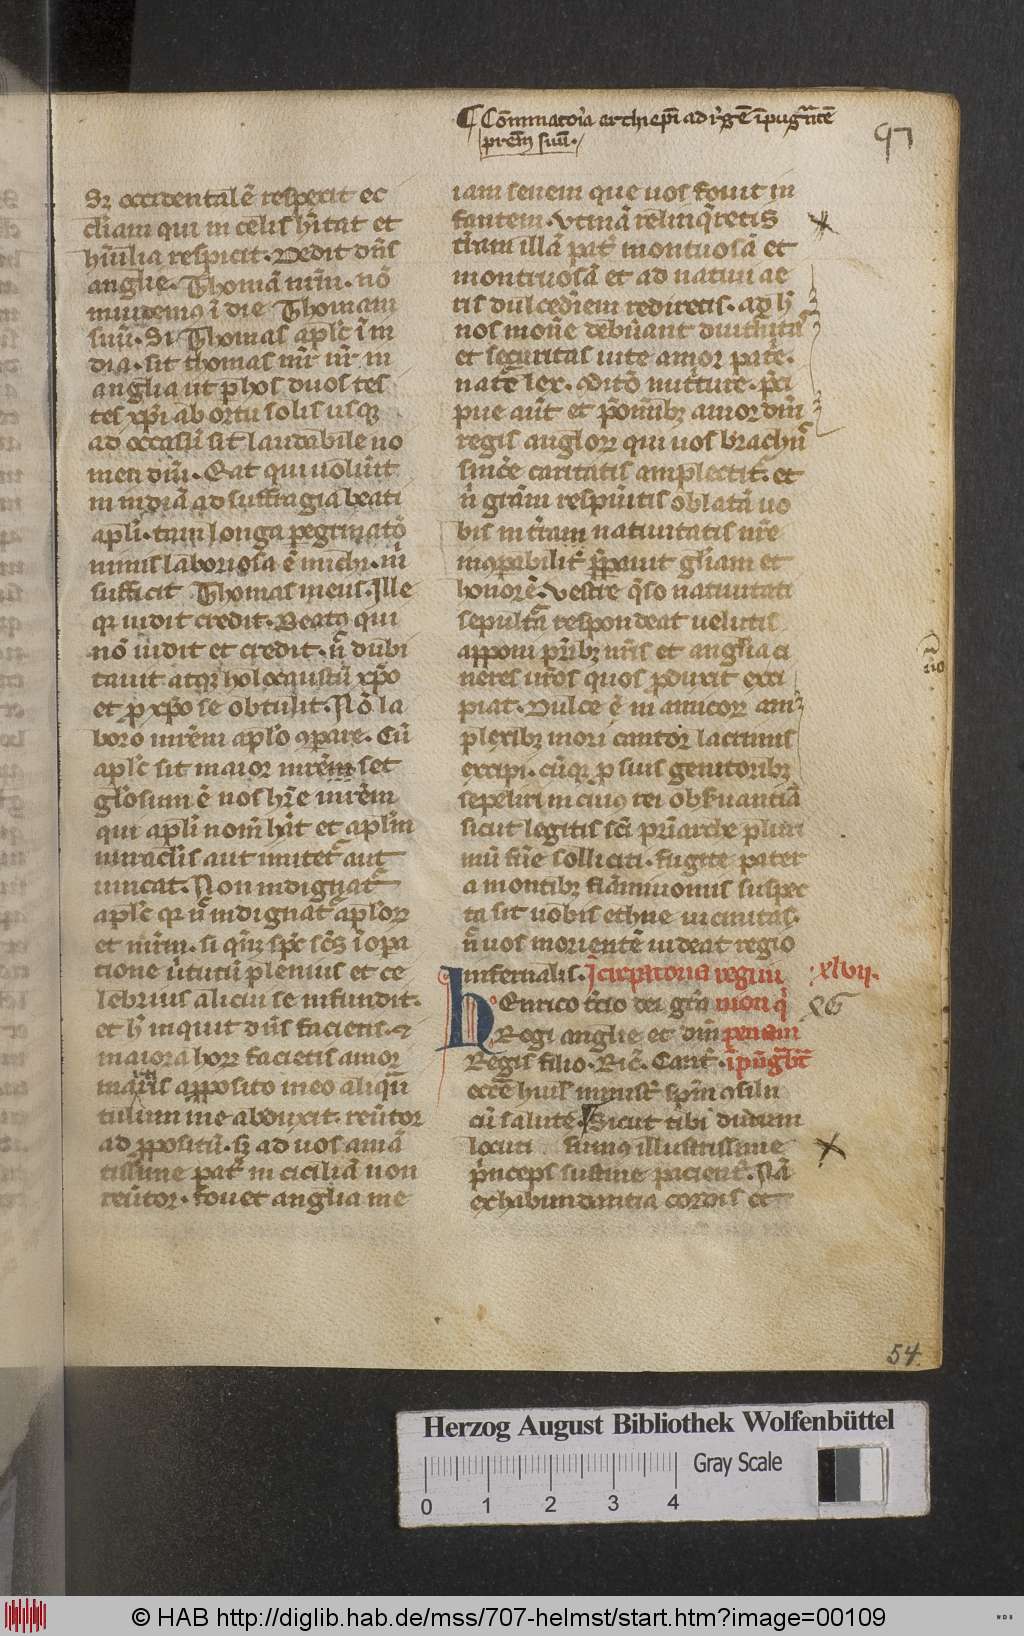 ¶ Cōminatoīa archiepī ad rgē īpugnātē
prēm suū.
97
Si occidentalē respexit ec
cl'iam qui in celis hītat et
hūilia respicit. Dedit dn̄s
anglie. Thomā nr̄m. nō
mutemꝰ ī die Thomam
suū. Si Thomas apl'c ī in
dia. sit thomas mr̄ nr̄ in
anglia ut p hos duos tes
tes xp̄i ab ortu solis usqꝫ
ad occasū sit laudabile no
men dn̄i. Eat qui uolūit
in indiā ad suffragia beati
apl'i. tam longa pegrinatō
nimis laboriosa ē michi. m̄
sufficit Thomas meus. Ille
qꝛ uidit credit. Beatꝰ qui
nō uidit et credit. n̄ dubi
tauit atqꝫ holocaustū xp̄o
et p xp̄o se obtulit. Nō la
boro mr̄em apl'o ꝯpare. Cū
apl'c sit maior mr̄em set
gl'osum ē nos hr̄e mr̄em
qui apl'i nom̄ hāt et apl'm
miracl'is aut imitet' aut
uincat. Non indignat'
apl'c qꝛ n̄ indignat' apl'oꝝ
et mr̄m. si qn̄qꝫ sp̄c sc̄s ī opa
tione uirtutū plenius et ce
lebrius alicui se infundit.
et h̄ inquit dn̄s facietis. ⁊
maiora horꝝ facietis amor
maris apposito meo aliqn̄
tulum me abduxit. reūtor
ad ꝓpositū. sꝫ ad uos amā
tissime pat' in ciciliā non
reūtor. fouet anglia me
iam senem que uos fouit in
fantem. Utinā relinqretis
t'ram illā pat' montuosā et
montruosā et ad natiui ae
ris dulcedīem rediretis. ad h̄
nos mon̄e debūant diuinita
et securitas uite amor pate.
nate lex. ꝯditō nutture. p̄ci
pue aūt et p̄ōmībꝫ amor dn̄i
regis angloꝝ qui uos brachiis
sincē caritatis amplectit'. et
n̄ gr̄am respūitis oblatā uo
bis in t'ram natiuitatis nr̄e
incōpabilit' p̄parauit gl'iam et
honorē. Vestre q̄so natiuitati
sepultā respondeat uelitis
apponi pr̄ibꝫ nr̄is et anglia ci
neres ur̄os quos ꝓduxit exci
piat. Dulce ē in amicoꝝ am
plexibꝫ mori eantoꝝ lacrimis
excipi. cūqꝫ p suis genitoribꝫ
sepeliri in cuiꝰ rei obsuantiā
sicut legitis sc̄i pr̄iarche pluri
mū fūe solliciti. fugite pater
a montibꝫ flāmiuomis suspec
ta sit uobis ethne uicinitas.
n̄ uos morientē uideat regio
infernalis. Īcrepatoria regnū
xlvii.
Henrico t'cio dei gr̄a mori q
Regi anglie et dn̄i penam
Regis filio. Ric̄. Cant'. īpūgāt
eccē huīs minist' sp̄m ꝯsilii
cū salutē. Sicut tibi dudum
locuti sumꝰ illustrissime
p̄nceps sustine pacient'. Nā
ex habundantia cordis et
54
Herzog August Bibliothek Wolfenbüttel
0 1 2 3 4
Gray Scale
© HAB http://diglib.hab.de/mss/707-helmst/start.htm?image=00109